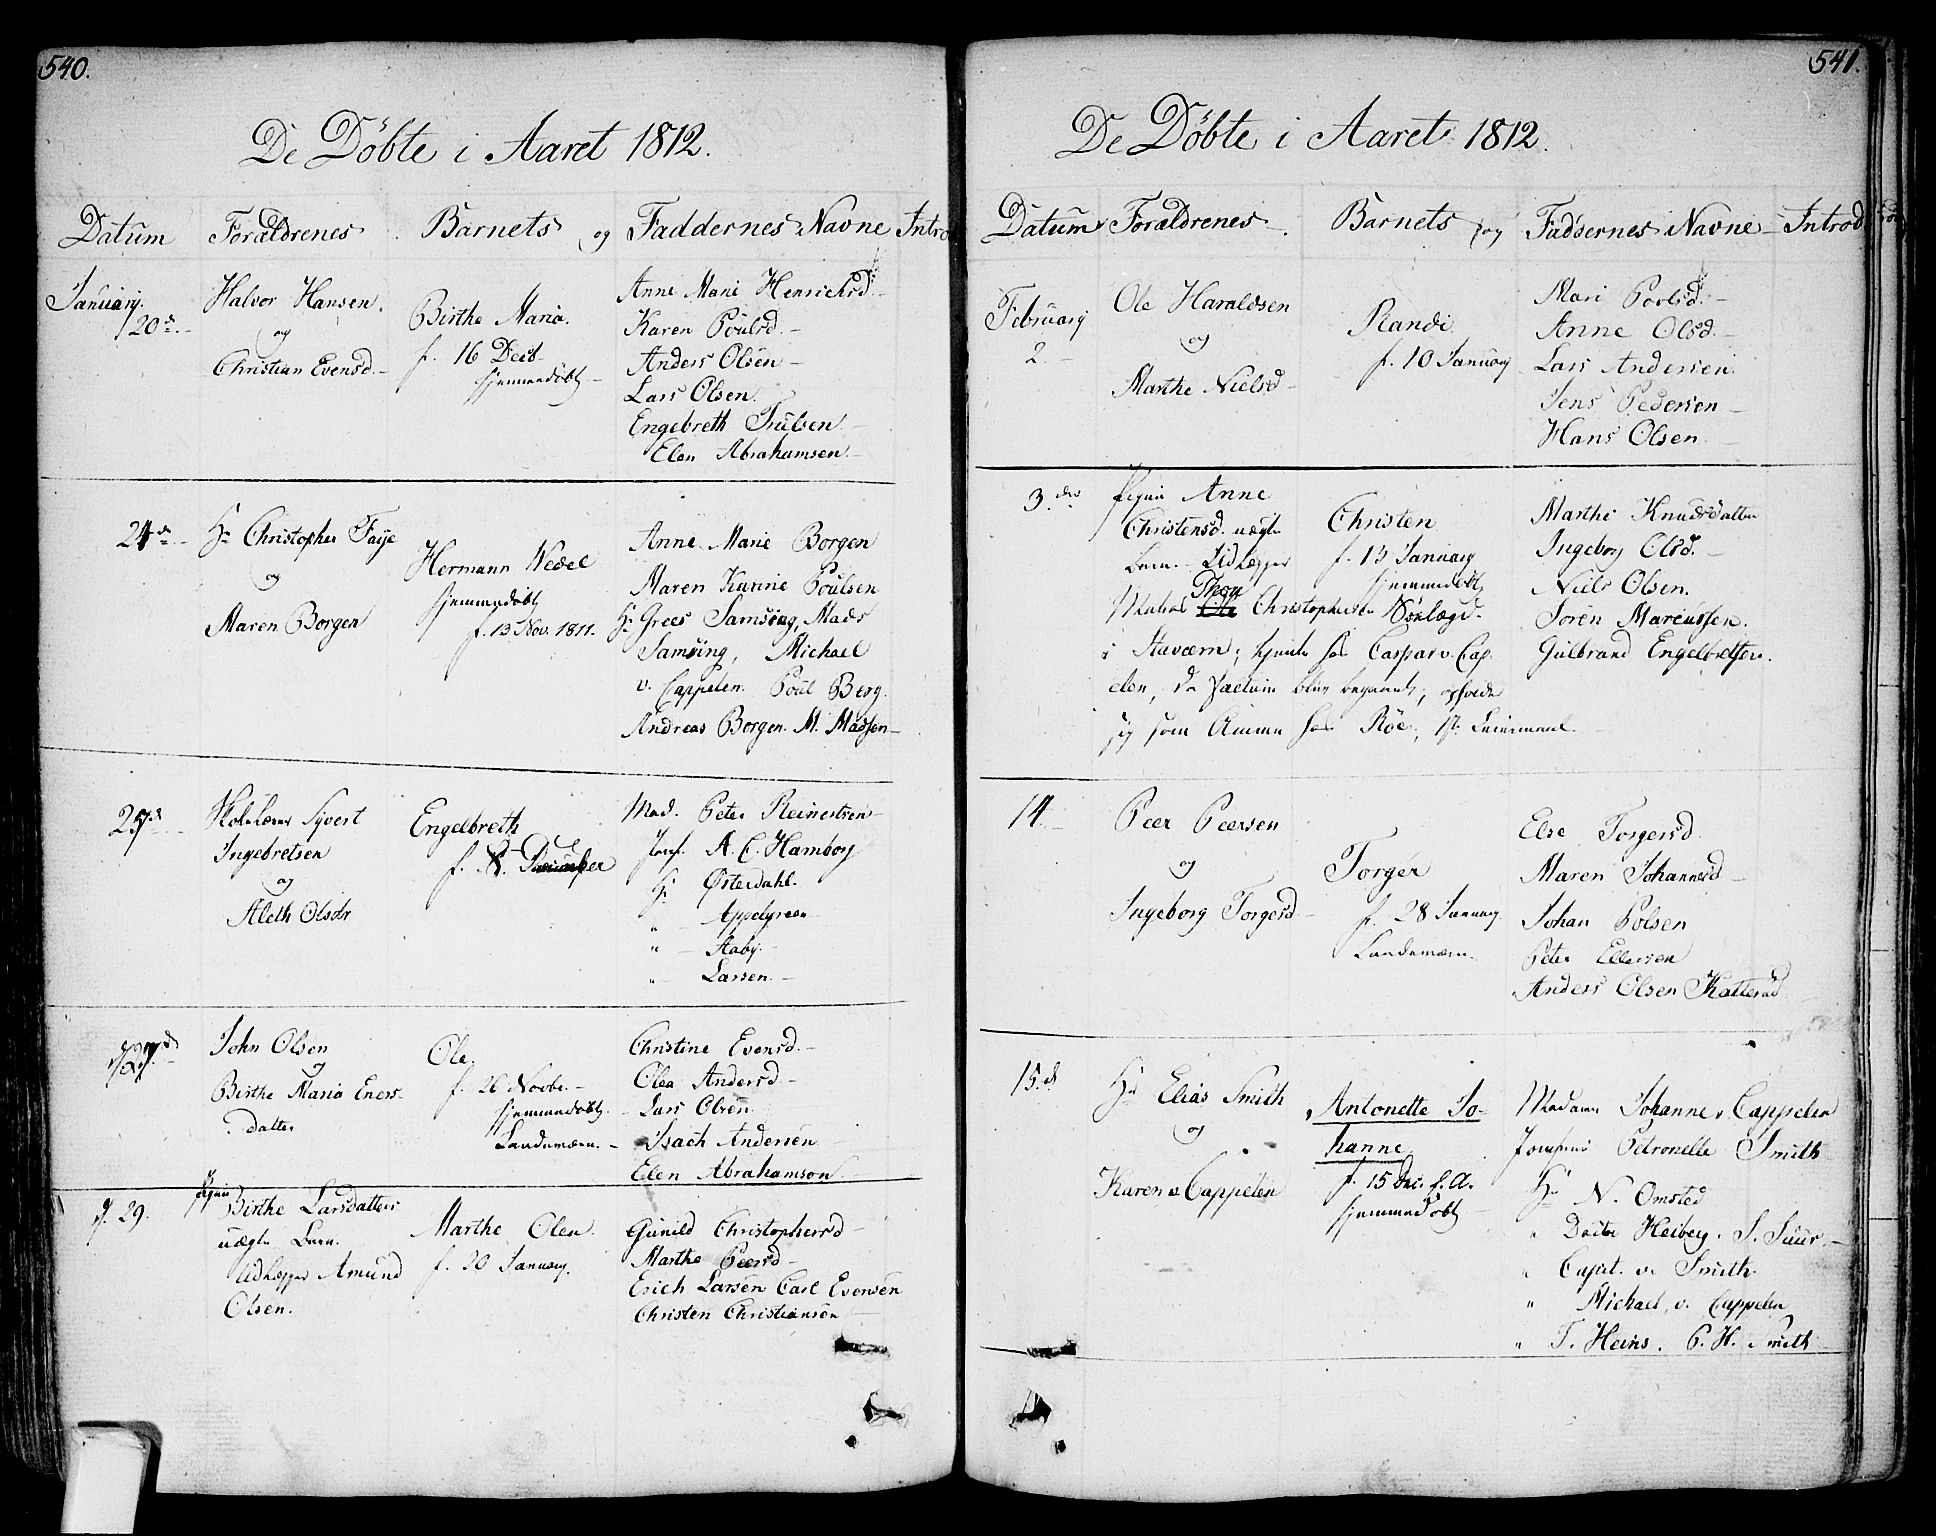 540.
De Döbte i Aaret 1812.
Datum Forældrenes Barnets og Faddernes Navne Intro
January 20de
Halvor Hansen
og
Christian Evensd.
Birthe Maria.
f. 16 Decb
hjemmedöbt
Anne Marie Henrichsd.
Karen Poulsd.
Anders Olsen
Lars Olsen.
Engebreth Trulsen.
Elen Abrahamsen.
24de
Hr Christopher Faye
og
Maren Borgen
Hermann Wedel
hjemmedöbt
f. 13 Nov. 1811.
Anne Marie Borgen
Maren Kunnie Poulsen
Hr Grees Samsing, Mads
Samsing, Michael
v. Cappelen. Poul Berg.
Andreas Borgen. M. Madsen
Skolelærer Syvert
Ingebretsen
og
Aleth Olsdr
Engelbreth
f.
Mad. Peter Reinertsen
Jomf. A. C. Hamborg
Hr Østerdahl.
" Appelgreen
" Aaby
" Larsen.
27de
John Olsen
og
Birthe Maria Eners-
datter
Ole.
f. 26 Novbr.
hjemmedöbt.
Landeværn.
Christine Evensd.
Olea Andersd
Lars Olsen
Isach Andersen
Elen Abrahamson
29.
Pigen
Birthe Larsdatters
uægte Barn.
Udlægger Amund
Olsen.
Marthe Olea.
f. 20 January.
Gunild Christophersd
Marthe Peersd
Erich Larsen Carl Evensen
Christen Christiansen
541.
De Döbte i Aaret 1812.
Datum Forældrenes Barnets og Faddernes Navne Introd
February
2.
Ole Haraldsen
og
Marthe Nielsd
Randi
f. 10 January
Mari Povlsd.
Anne Olsd.
Lars Andersen
Jens Pedersen
Hans Olsen
3.
Pigen Anne
Christensd. uægte
Barn. Udlægger
Thor
Christophersen
i Staværn; tjente hos Caspar v. Cap-
elen, da Factum blev begaaet; opholder
sig som Amme hos Röe, 1st Leiermaal.
Christen
f. 13 January
hjemmedöbt
Marthe Knudsdatter
Ingeborg Olsd.
Niels Olsen.
Sören Marcussen.
Gulbrand Engelbretsen.
14.
Peer Peersen
og
Ingeborg Torgersd
Torger
f. 28 January
Landeværn.
Else Torgersd.
Maren Johannesd
Johan Polsen
Peter Ellersen
Anders Olsen Katterød
15.d
Hr Elias Smith
og
Karen v Cappelen
Antonette Jo-
hanne
f. 15 Dec. f. A.
hjemmedöbt
Madame Johanne v Cappelen
Jomfrue Petronelle Smith
Hr N. Omsted
" Doctor Heiberg. S. Suur.
" Capit. v. Smith.
" Michael v. Cappelen
" T. Heins. P. H. Smith